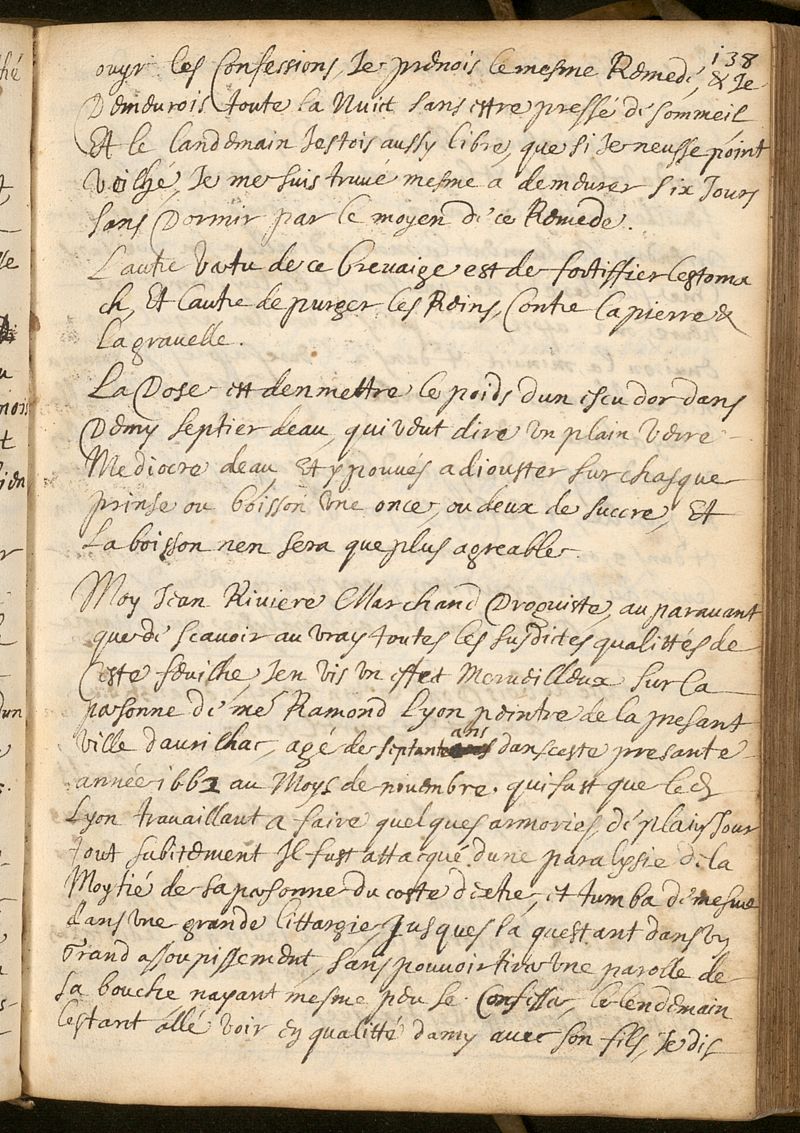 138
ouyr les Confessions, Je prenois le mesme Remede, & Je
Demeurois toute la Nuict sans estre pressé de sommeil
Et le landemain Jestois aussy libre, que si Je neusse point
veilhé, Je me suis truué mesme a demeurer six Jours
sans Dormir par le moyen de ce Remede.
Lautre vertu de ce breuaige est de fortiffier lestoma
ch, Et lautre de purger les Reins, Contre la pierre &
la grauelle.
La Dose est denmettre le poids dun escu dor dans
Demy septier deau, qui veut dire vn plain verre
Mediocre deau Et y pouués adiouster sur chasque
prinse ou boisson vne once, ou deux de succre, Et
La boisson nen sera que plus agreable.
Moy Jean Riviere Marchand Droguiste, au parauant
que de scauoir au vray toutes les susdictes qualittés de
Ceste feuilhe, Jen vis vn effect Merueilleux sur la
personne de me Ramond Lyon peintre de la presant
ville daurilhac, agé de septante ans dans ceste presante
année 1662 au Moys de nouembre. qui fust que led
Lyon trauaillant a faire quelques armories, de plain Jour
tout subitement Il fust attacqué dune paralysie de la
Moytié de sa personne du costé dextre, et tumba de mesme
dans vne grande littargie, Jusques la questant dans vn
Grand assoupissement, sans pouuoir tirer vne parolle de
sa bouche nayant mesme peu se Confesser, le lendemain
lestant allé voir en qualitté damy auec son fils, Je dis